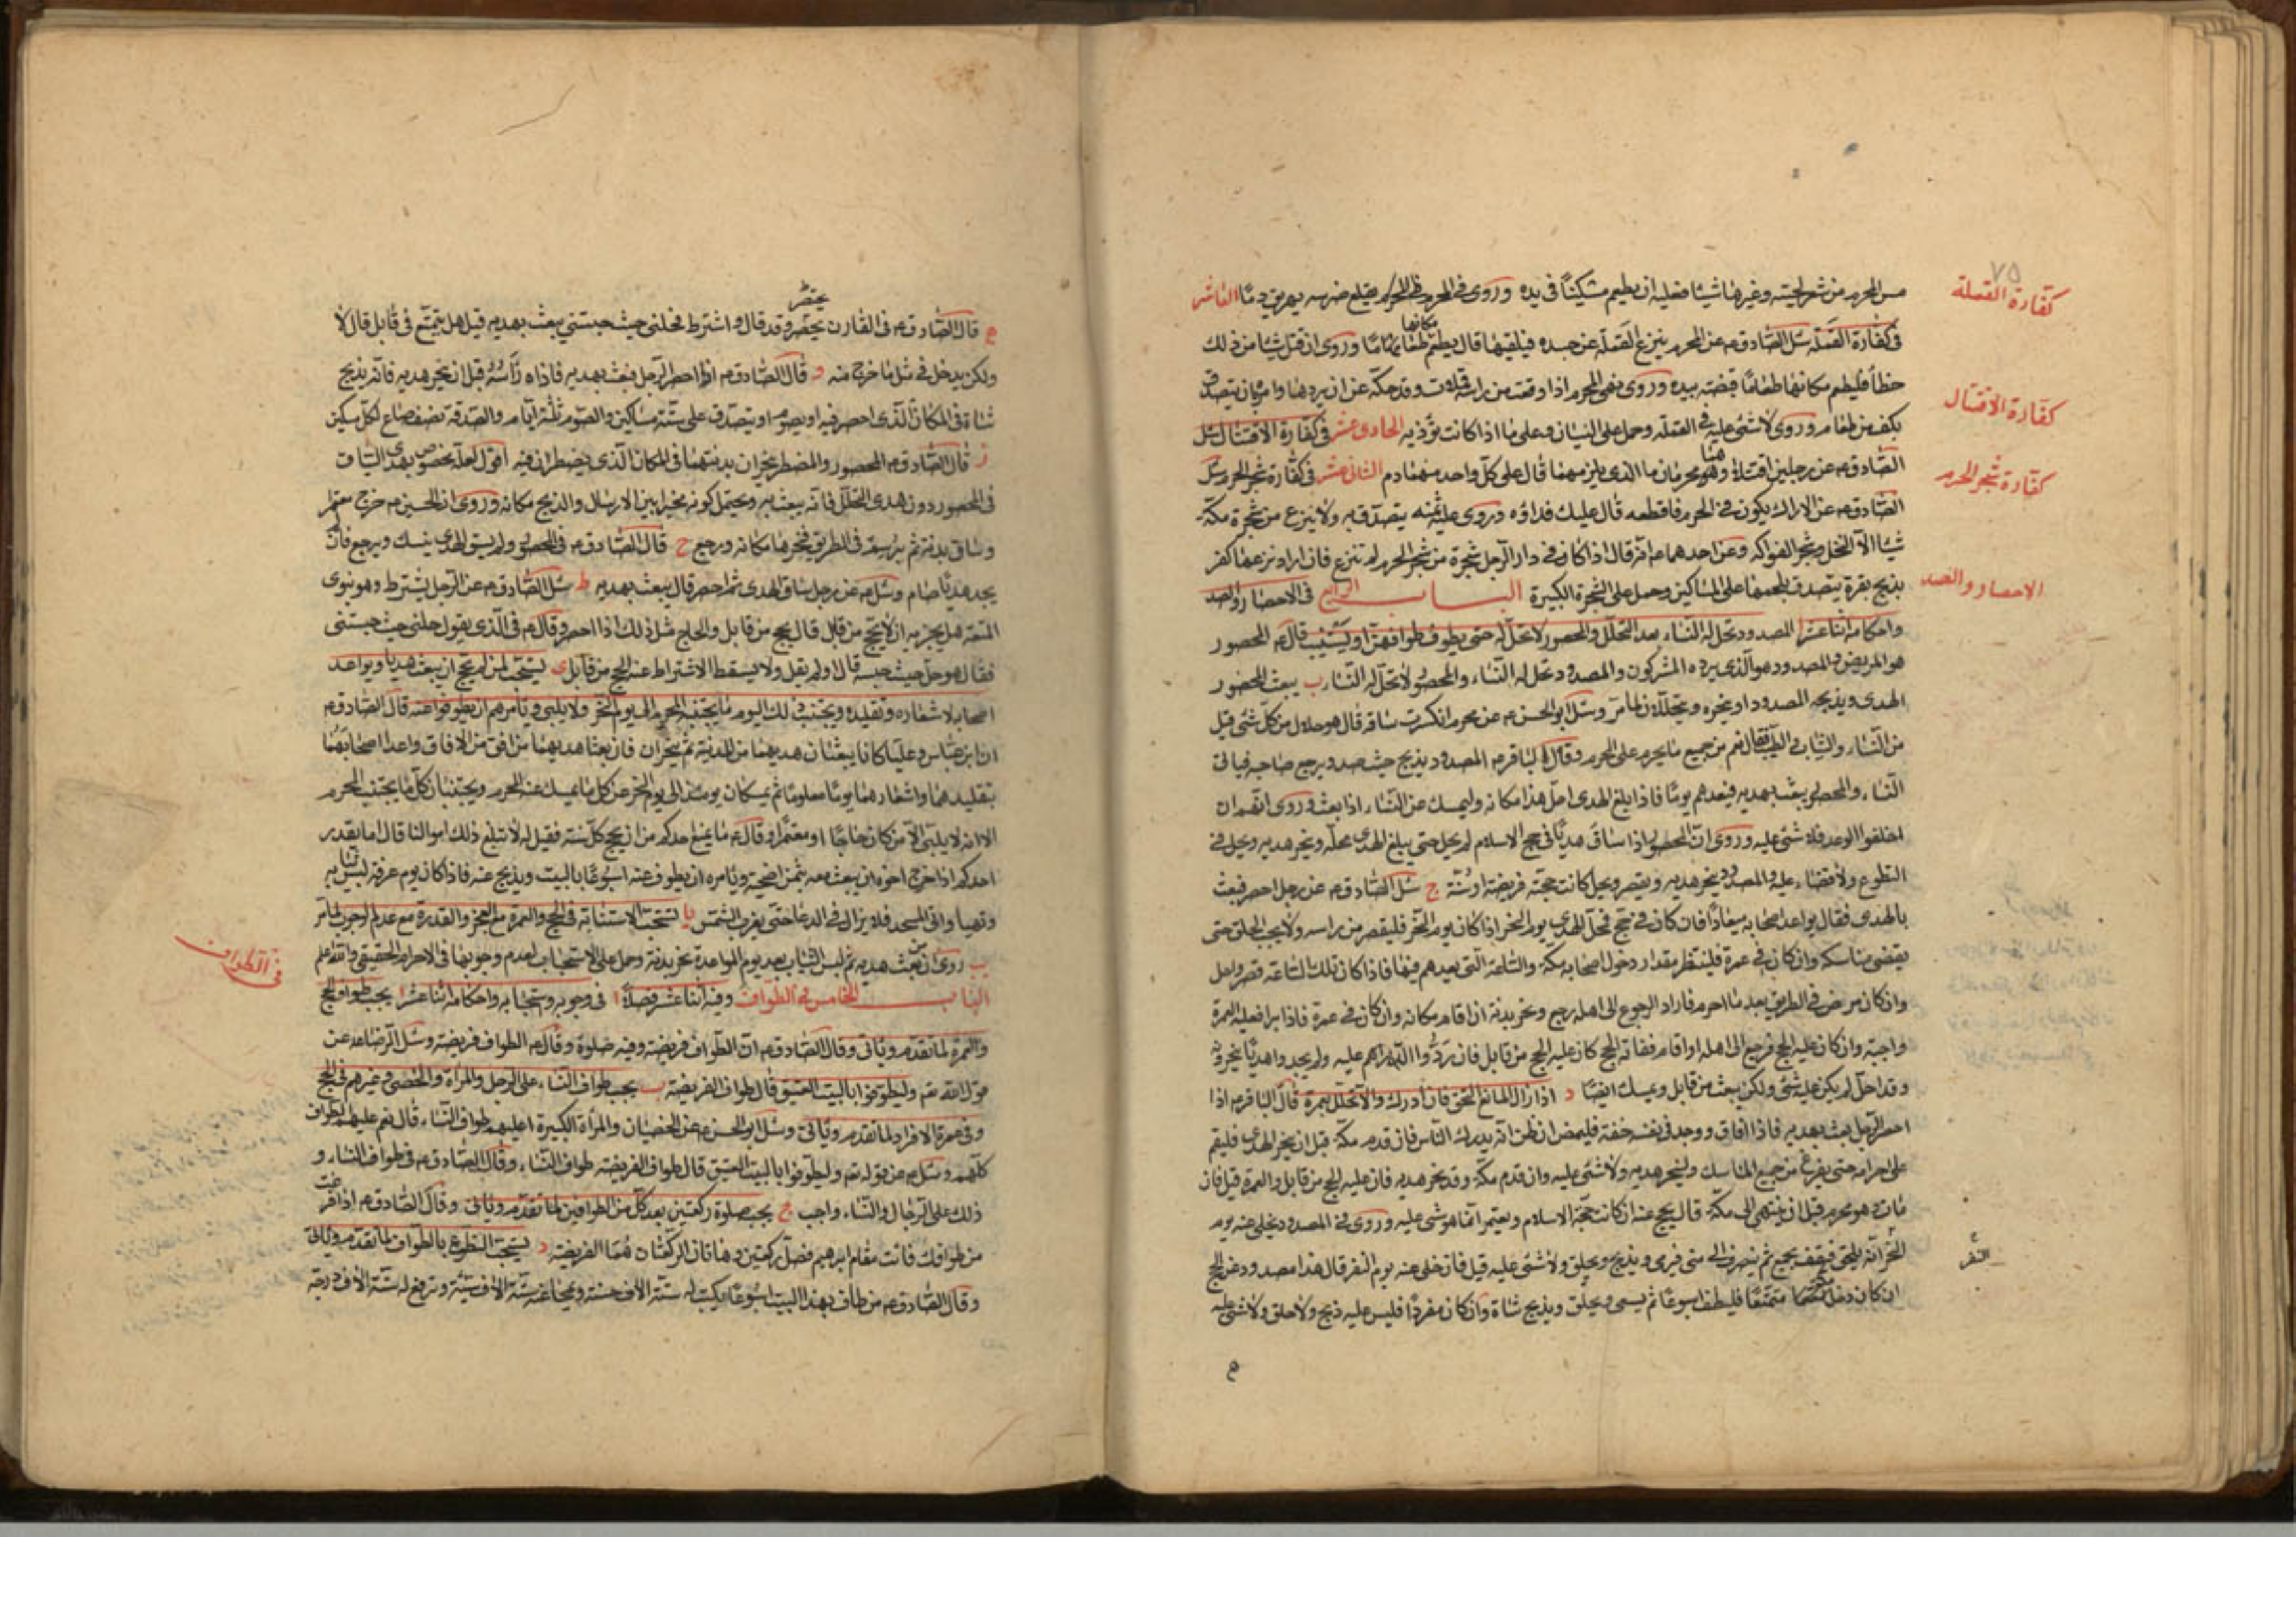 ٧٥
كفارة القملة
مس المحرم من شعر لحيته وغيرها شيئا فعليه ان يطعم مسكينا في يده وروى في المحرم يقلع ضرسه يهريق دما العاشر
في كفارة القملة سئل الصادق ع عن المحرم ينزع القملة عن جسده فيلقيها قال يطعم مكانها طعاما وروى ان قتل شيئا من ذلك
خطأ فليطعم مكانها طعاما قبضة بيده وروى
كفارة الاقتتال
بكف من طعام وروى لا شئ عليه في القملة وحمل على النسيان وعلى ما اذا كانت تؤذيه الحادى عشر في كفارة الاقتتال سئل
كفارة شجر الحرم
الصادق ع عن رجلين اقتتلا وهما محرمان ما الذى يلزمهما قال على كل واحد منهما دم الثانى عشر في كفارة شجر الحرم سئل
الصادق ع عن الاراك يكون في الحرم فاقطعه قال عليك فداؤه وروى عليه ثمنه يتصدق به ولا ينزع من شجرة مكة
شيئا الا النخل وشجر الفواكه وعن احدهما ع انه قال اذا كان في دار الرجل شجرة من شجر الحرم لم تنزع فان اراد نزعها كفر
الاحصار والصد
بذبح بقرة يتصدق بلحمها على المساكين وحمل على الشجرة الكبيرة الباب الرابع في الاحصار والصد
واحكامه اثنا عشر ا المصدود تحل له النساء بعد التحلل والمحصور لا تحل له حتى يطوف طوافهن او يستنيب قال ع المحصور
هو المريض والمصدود هو الذى يرده المشركون والمصدود تحل له النساء والمحصور لا تحل له النساء ب يبعث المحصور
الهدى ويذبحه المصدود او ينحره ويتحللان لما مر وسئل ابو الحسن ع عن محرم انكسرت ساقه قال هو حلال من كل شئ قيل
من النساء والثياب والطيب فقال نعم من جميع ما يحرم على المحرم وقال الباقر ع المصدود يذبح حيث صد ويرجع صاحبه فياتى
النساء والمحصور يبعث بهديه فيعدهم يوما فاذا بلغ الهدى احل هذا مكانه وليمسك عن النساء اذا بعث وروى انهم ان
اخلفوا الوعد فلا شئ عليه وروى ان المحصور اذا ساق هديا في حج الاسلام لم يحل حتى يبلغ الهدى محله وينحر هديه ويحل في
التطوع ولا قضاء عليه والمصدود ينحر هديه ويقصر ويحل كانت حجته فريضة او سنة ج سئل الصادق ع عن رجل احصر فبعث
بالهدى فقال يواعد اصحابه ميعادا فان كان في حج فمحل الهدى يوم النحر اذا كان يوم النحر فليقصر من راسه ولا يجب الحلق حتى
يقضى مناسكه وان كان في عمرة فلينتظر مقدار دخول اصحابه مكة والساعة التى يعدهم فيها فاذا كان تلك الساعة قصر واحل
وان كان مرض في الطريق بعد ما احرم فاراد الرجوع الى اهله رجع ونحر بدنة ان اقام مكانه وان كان في عمرة فاذا برأ فعليه العمرة
واجبة وان كان عليه الحج فرجع الى اهله او اقام ففاته الحج كان عليه الحج من قابل فان ردوا الدراهم عليه ولم يجدوا هديا ينحرونه
وقد احل لم يكن عليه شئ ولكن يبعث من قابل ويمسك ايضا د اذا زال المانع التحق فان ادرك والا تحلل بعمرة قال الباقر ع اذا
احصر الرجل بعث بهديه فاذا افاق ووجد في نفسه خفة فليمض ان ظن انه يدرك الناس فان قدم مكة قبل ان ينحر الهدى فليقم
على احرامه حتى يفرغ من جميع المناسك ولينحر هديه ولا شئ عليه وان قدم مكة وقد نحر هديه فان عليه الحج من قابل والعمرة قيل فان
مات وهو محرم قبل ان ينتهى الى مكة قال يحج عنه ان كانت حجة الاسلام ويعتمر انما هو شئ عليه وروى في المصدود يخلى عنه يوم
النفر
النحر انه يلحق فيقف بجمع ثم ينصرف الى منى فيرمى ويذبح ويحلق ولا شئ عليه قيل فان خلى عنه يوم النفر قال هذا مصدود عن الحج
ان كان دخل مكة متمتعا فليطف اسبوعا ثم يسعى ويحلق ويذبح شاة وان كان مفردا فليس عليه ذبح ولا حلق ولا شئ عليه
ه
ه قال الصادق ع في القارن يحصر وقد قال واشترط فحلنى حيث حبستنى يبعث بهديه قيل هل يتمتع في قابل قال لا
ولكن يدخل في مثل ما خرج منه و قال الصادق ع اذا احصر الرجل فبعث بهديه فاذاه رأسه قبل ان ينحر هديه فانه يذبح
شاة في المكان الذى احصر فيه او يصوم او يتصدق على ستة مساكين والصوم ثلثة ايام والصدقة نصف صاع لكل مسكين
ز قال الصادق ع المحصور والمضطر ينحران بدنتهما في المكان الذى يضطران فيه اقول لعله مخصوص بهدى السياق
في المحصور دون هدى التحلل فانه يبعث به ويحتمل كونه مخيرا بين الارسال والذبح مكانه وروى ان الحسين ع خرج معتمرا
وساق بدنة ثم برسم في الطريق فنحرها مكانه ورجع ح قال الصادق ع في المحصور ولم يسق الهدى ينسك ويرجع فان لم
يجد هديا صام وسئل ع عن رجل ساق الهدى ثم احصر قال يبعث بهديه ط سئل الصادق ع عن الرجل يشترط وهو ينوى
المتعة هل يجزيه ان لا يحج من قابل قال يحج من قابل والحاج مثل ذلك اذا احصر وقال ع في الذى يقول حلنى حيث حبستنى
فقال هو حل حيث حبسه قال اولم يقل ولا يسقط الاشتراط عنه الحج من قابل ى يستحب لمن لم يحج ان يبعث هديا ويواعد
اصحابه لاشعاره وتقليده ويجتنب ذلك اليوم ما يجتنبه المحرم الى يوم النحر ولا يلبى ويامرهم ان يطوفوا عنه قال الصادق ع
ان ابن عباس وعليا كانا يبعثان هديهما من المدينة ثم يتجردان فان بعثا هديهما من افق من الافاق واعدا اصحابهما
بتقليدهما واشعارهما يوما معلوما ثم يمسكان يومئذ الى يوم النحر عن كل ما يمسك عنه المحرم ويجتنبان كل ما يجتنب المحرم
الا انه لا يلبى الا من كان حاجا او معتمرا وقال ع ما يمنع احدكم من ان يحج كل سنة فقيل له لا تبلغ ذلك اموالنا قال اما يقدر
احدكم اذا خرج اخوه ان يبعث معه بثمن اضحية ويامره ان يطوف عنه اسبوعا بالبيت ويذبح عنه فاذا كان يوم عرفة لبس ثيابه
وتهيا واتى المسجد فلا يزال في الدعا حتى يغرب الشمس يا تستحب الاستنابة في الحج والعمرة مع العجز والقدرة مع عدم الوجوب لما مر
يب روى ان من بعث هديه ثم لبس الثياب بعد يوم المواعدة نحر بدنة وحمل على الاستحباب لعدم وجوبها في الاحرام الحقيقى والله اعلم
في الطواف
الباب الخامس في الطواف وفيه اثنا عشر فصلا ا في وجوبه واستحبابه واحكامه اثنا عشر ا يجب طواف الحج
والعمرة لما تقدم وياتى وقال الصادق ع ان الطواف فريضة وفيه صلوة وقال ع الطواف فريضة وسئل الرضا ع عن
قول الله تع وليطوفوا بالبيت العتيق قال طواف الفريضة ب يجب طواف النساء على الرجل والمرأة والخصى وغيرهم في الحج
وفي عمرة الافراد لما تقدم وياتى وسئل ابو الحسن ع عن الخصيان والمرأة الكبيرة اعليهم طواف النساء قال نعم عليهم الطواف
كلهم وسئل ع عن قوله تع وليطوفوا بالبيت العتيق قال طواف الفريضة طواف النساء وقال الصادق ع في طواف النساء و
ذلك على الرجال والنساء واجب ج يجب صلوة ركعتين بعد كل من الطوافين لما تقدم وياتى وقال الصادق ع اذا فرغت
من طوافك فائت مقام ابرهيم فصل ركعتين وهاتان الركعتان هما الفريضة د يستحب التطوع بالطواف لما تقدم وياتى
وقال الصادق ع من طاف بهذا البيت اسبوعا يكتب له ستة الاف حسنة ويمحا عنه ستة الاف سيئة وترفع له ستة الاف درجة